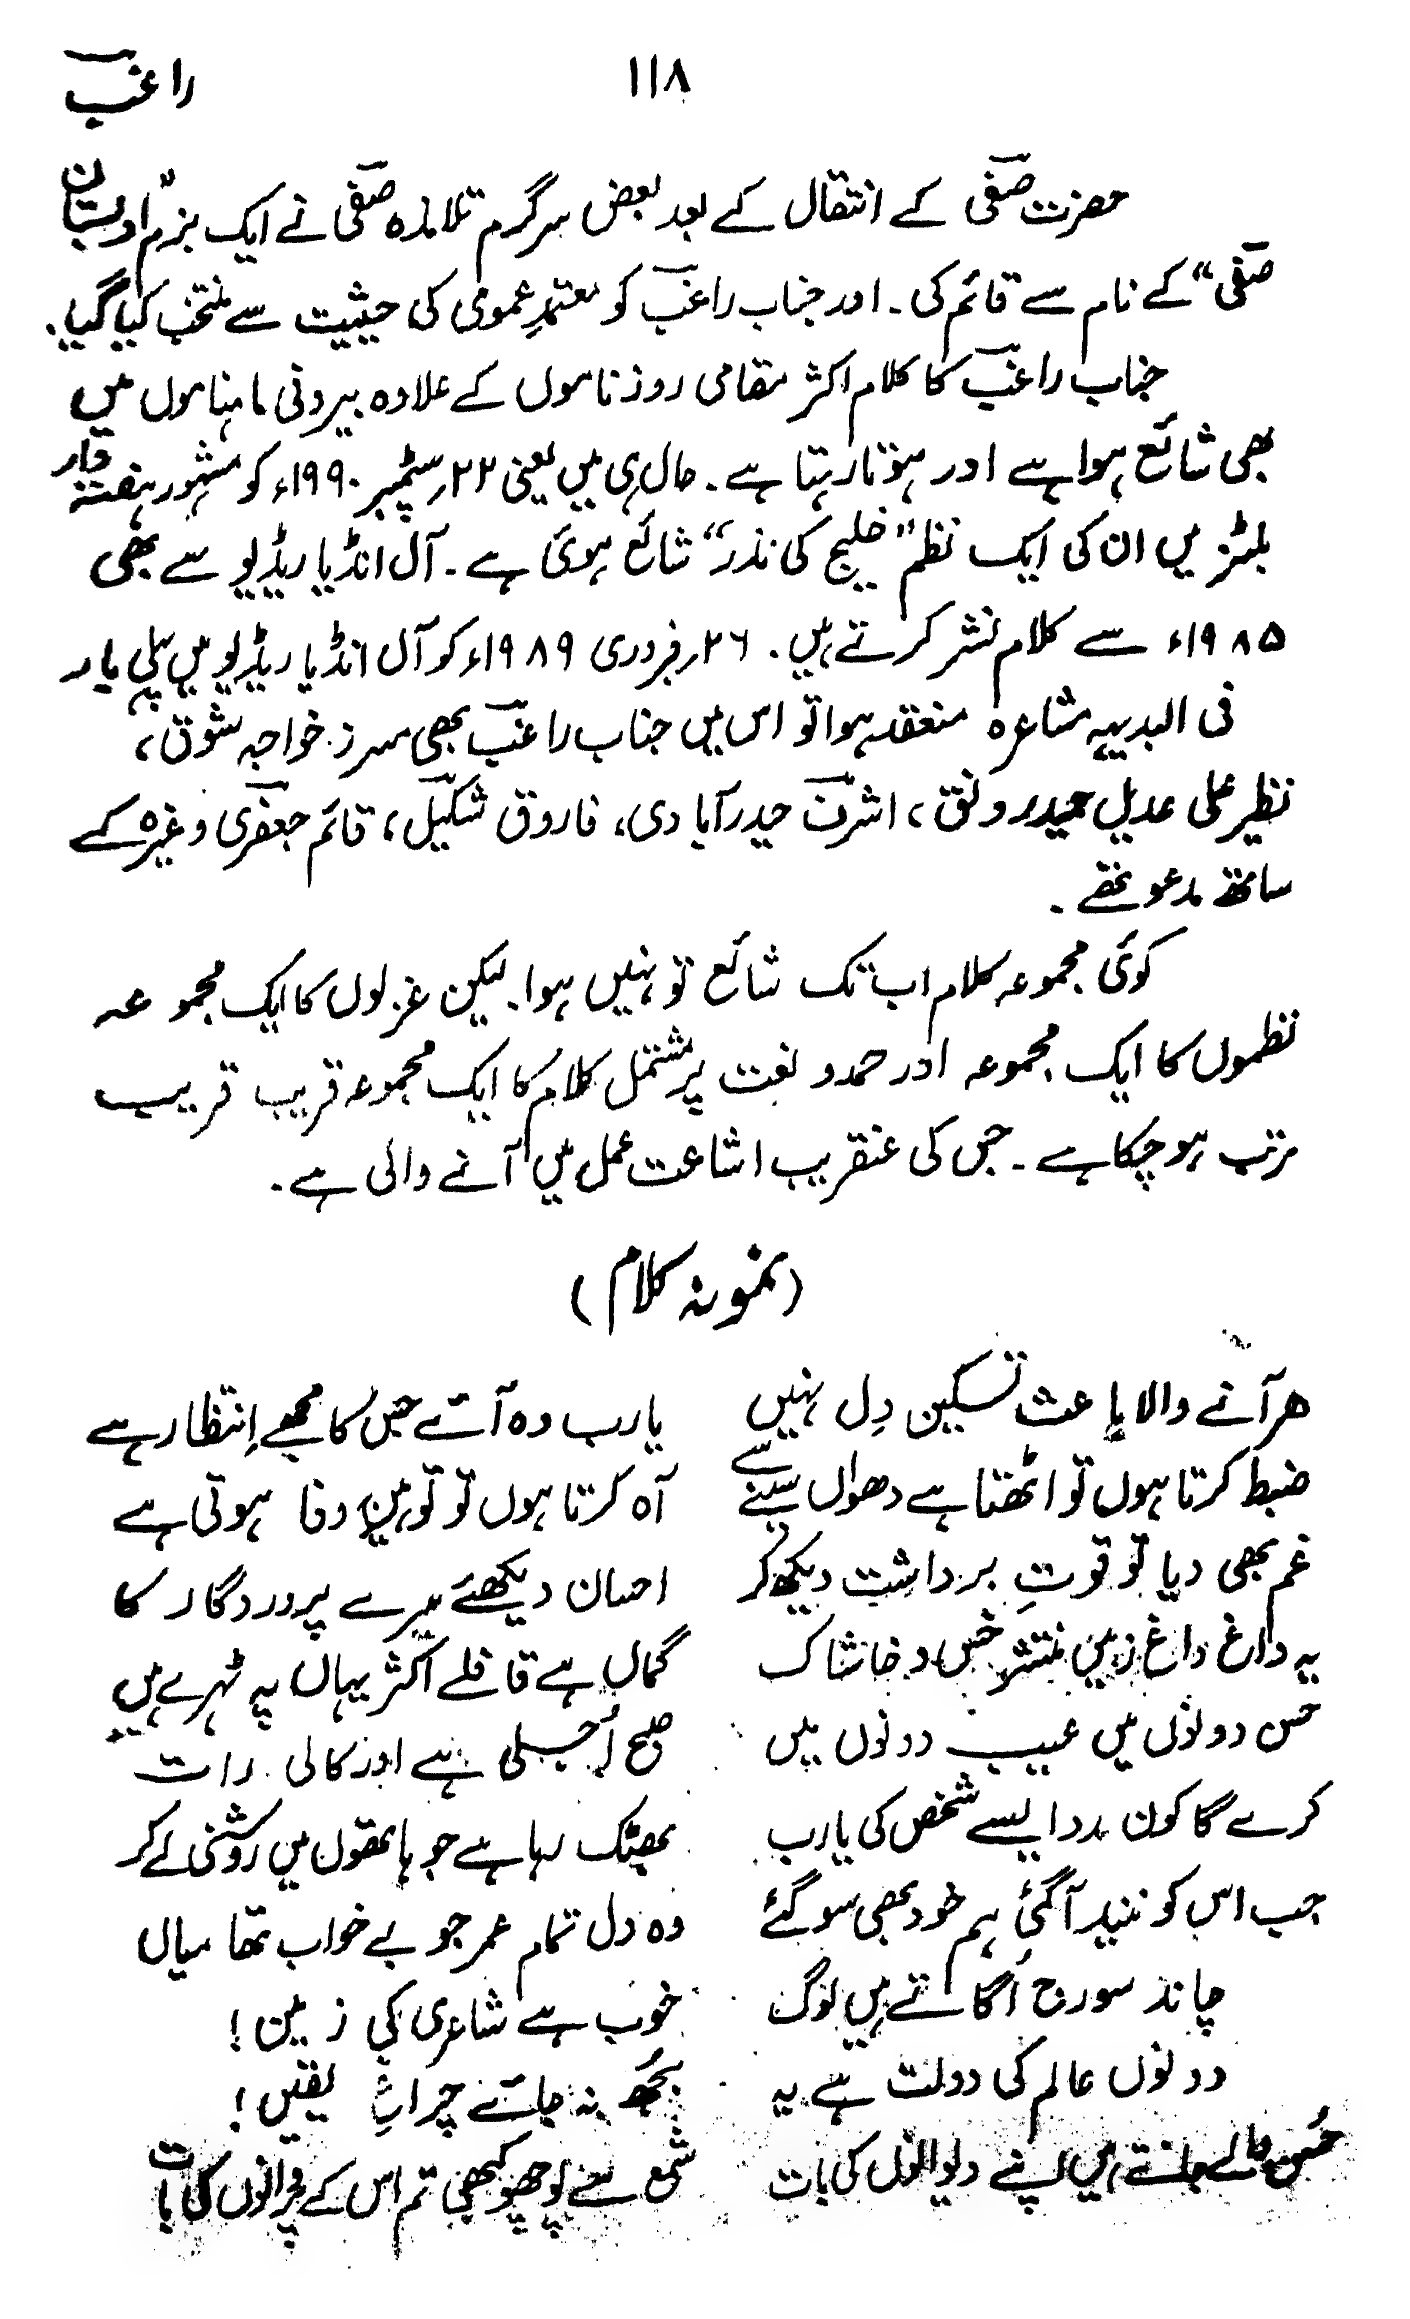 ۱۱۸
راغب
حضرت صفی کے انتقال کے بعد بعض سرگرم تلامذہ صفی نے ایک بزم "ادبستان
صفی" کے نام سے قائم کی۔ اور جناب راغب کو معتمدِ عمومی کی حیثیت سے منتخب کیا گیا۔
جناب راغب کا کلام اکثر مقامی روزناموں کے علاوہ بیرونی ماہناموں میں
بھی شائع ہوا ہے اور ہوتا رہتا ہے۔ حال ہی میں یعنی ۲۲؍ سٹمبر ۱۹۹۰ء کو مشہور ہفتہ وار
بلٹز میں ان کی ایک نظم "خلیج کی نذر" شائع ہوئی ہے۔ آل انڈیا ریڈیو سے بھی
۱۹۸۵ء سے کلام نشر کرتے ہیں۔ ۲۶؍ فروری ۱۹۸۹ء کو آل انڈیا ریڈیو میں پہلی بار
فی البدیہہ مشاعرہ منعقد ہوا تو اس میں جناب راغب بھی سرز خواجہ شوق،
نظیر علی عدیل حیدر رونق، اشرف حیدرآبادی، فاروق شکیل، قائم جعفری وغیرہ کے
ساتھ مدعو تھے۔
کوئی مجموعہ کلام اب تک شائع تو نہیں ہوا۔ لیکن غزلوں کا ایک مجموعہ
نظموں کا ایک مجموعہ اور حمد و نعت پر مشتمل کلام کا ایک مجموعہ قریب قریب
مرتب ہو چکا ہے۔ جس کی عنقریب اشاعت عمل میں آنے والی ہے۔
(نمونہ کلام)
ہر آنے والا باعث تسکین دِل نہیں یارب وہ آئے جس کا مجھے اِنتظار ہے
ضبط کرتا ہوں تو اٹھتا ہے دھواں سینے سے آہ کرتا ہوں تو توہین وفا ہوتی ہے
غم بھی دیا تو قوتِ برداشت دیکھ کر احسان دیکھئے میرے پروردگار کا
یہ داغ داغ زمین منتشر خس و خاشاک گماں ہے قافلے اکثر یہاں پہ ٹہرے ہیں
حسن دونوں میں عیب دونوں میں صبح اُجلی ہے اور کالی رات
کرے گا کون مدد ایسے شخص کی یارب بھٹک رہا ہے جو ہاتھوں میں روشنی لے کر
جب اس کو نیند آگئی ہم خود بھی سو گئے وہ دل تمام عمر جو بے خواب تھا میاں
چاند سورج اُگاتے ہیں لوگ خوب ہے شاعری کی زمین!
دونوں عالم کی دولت ہے یہ بُجھ نہ جائے چراغِ یقیں!
حُسن والے جانتے ہیں اپنے دیوانوں کی بات شمع سے پوچھو کبھی تم اس کے پروانوں کی بات